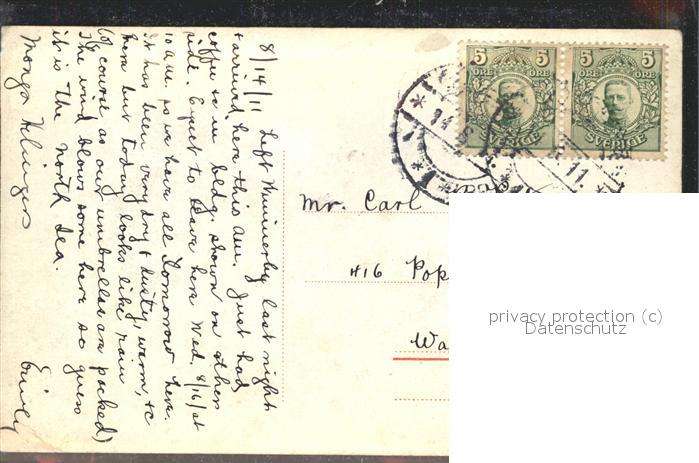 8/14/11 Left Vimmerby last night
& arrived here this am. Just had
coffee in bldg. shown on other
side. Expect to leave here Wed. 8/16/at
10 am so we have all Tomorrow here.
It has been very dry & dusty, warm, &c
here but today looks like rain
(of course as our umbrellas are packed)
The wind blows some here so guess
it is The North Sea.
Emily
5 5
ÖRE ÖRE
SVERIGE
5 5
ÖRE ÖRE
SVERIGE
14
11
Mr. Carl
416 Pop
Wa
privacy protection (c)
Datenschutz